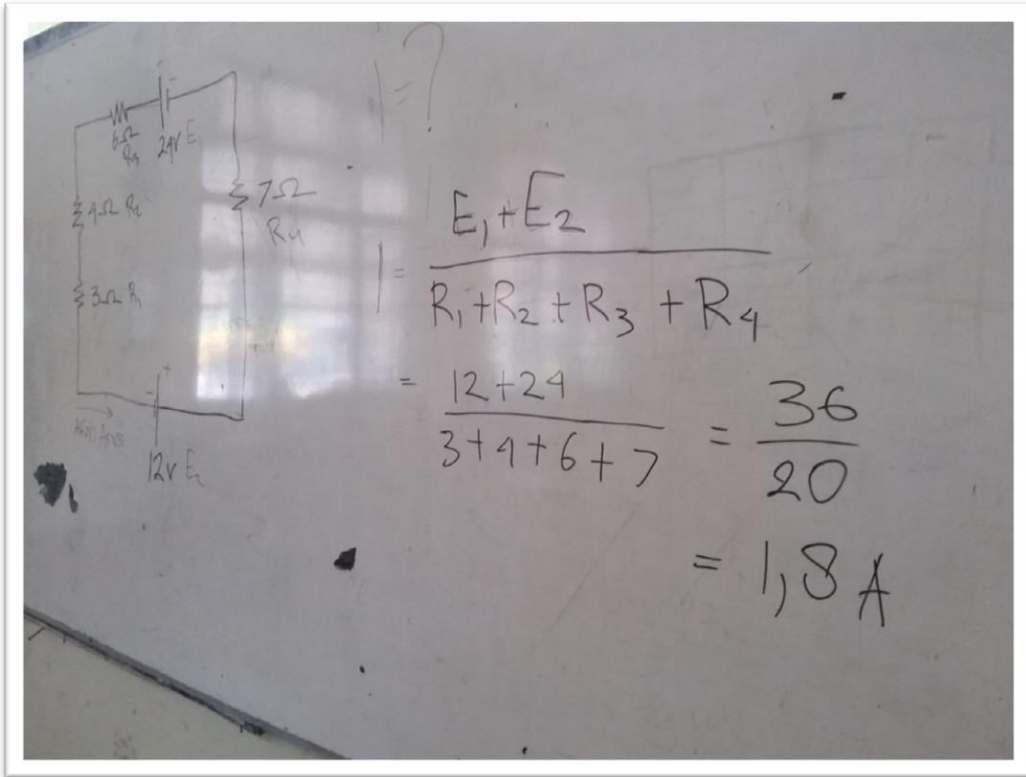 I = ?
6Ω
R3
24V E1
4Ω R2
7Ω
R4
3Ω R1
- +
12V E2
I = E1 + E2
R1 + R2 + R3 + R4
= 12 + 24
3 + 4 + 6 + 7
= 36
20
= 1,8 A